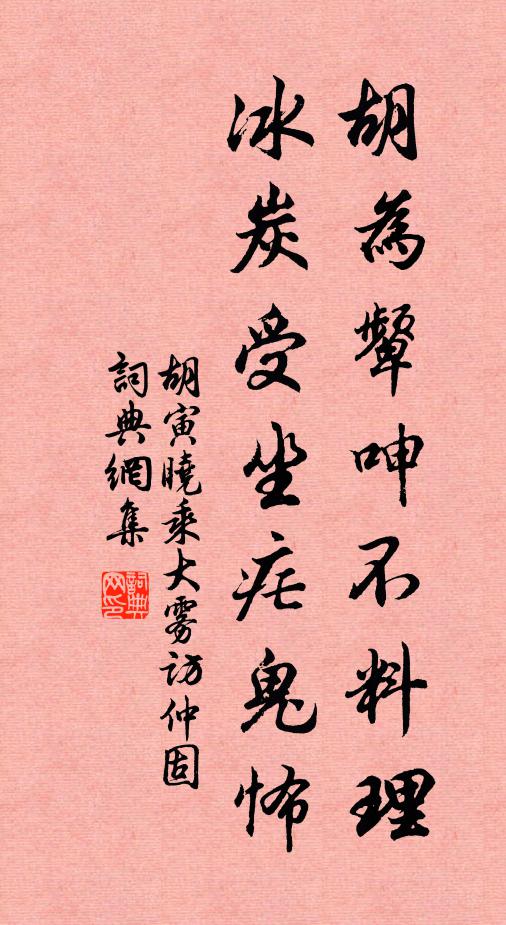 胡為顰呻不料理
冰炭受坐疟鬼怖
胡寅曉乘大雾訪仲固
詞典網集
詞典网印